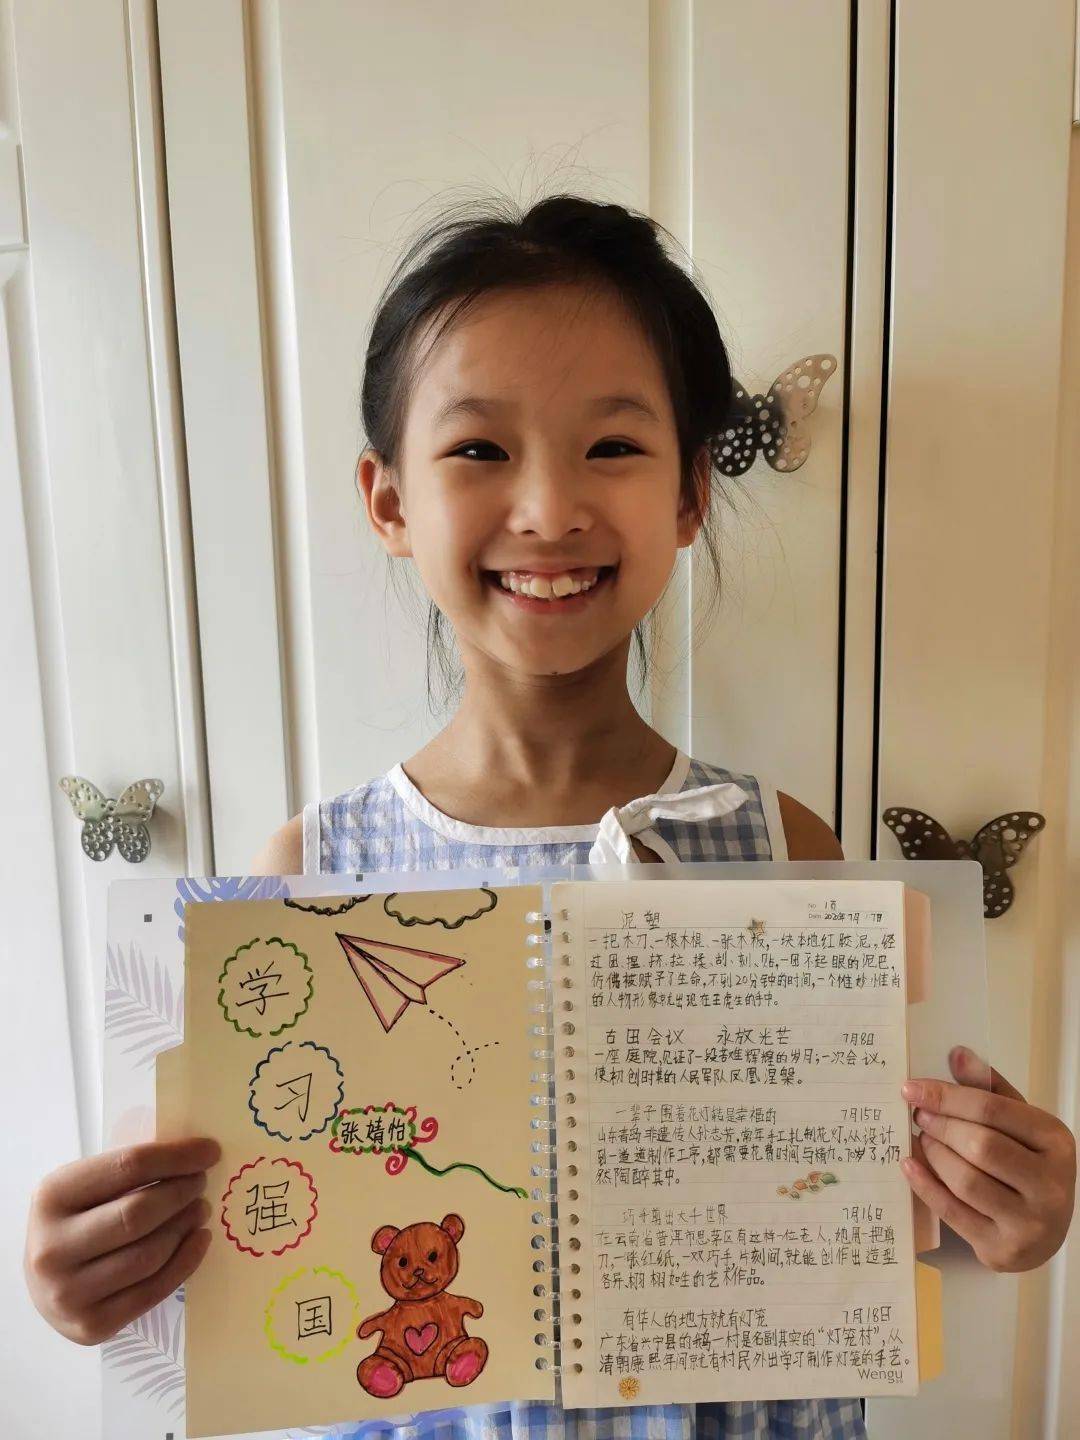 学
习
强
国
张婧怡
No. 1页
Date. 2020年7月17日
泥塑
一把木刀、一根木棍、一张木板,一块本地红胶泥,经
过团、捏、挤、拉、揉、刮、刻、贴,一团不起眼的泥巴,
仿佛被赋予了生命,不到20分钟的时间,一个惟妙惟肖
的人物形象就出现在王虎生的手中。
古田会议 永放光芒 7月8日
一座庭院,见证了一段苦难辉煌的岁月;一次会议,
使初创时期的人民军队凤凰涅槃。
一辈子围着花灯转是幸福的 7月15日
山东青岛非遗传人孙志芳,常年手工扎制花灯,从设计
到一道道制作工序,都需要花费时间与精力。70岁了,仍
然陶醉其中。
巧手剪出大千世界 7月16日
在云南省普洱市思茅区有这样一位老人,她用一把剪
刀,一张红纸,一双巧手,片刻间,就能创作出造型
各异、栩栩如生的艺术作品。
有华人的地方就有灯笼 7月18日
广东省兴宁县的鹅一村是名副其实的“灯笼村”,从
清朝康熙年间就有村民外出学习制作灯笼的手艺。
Wengu